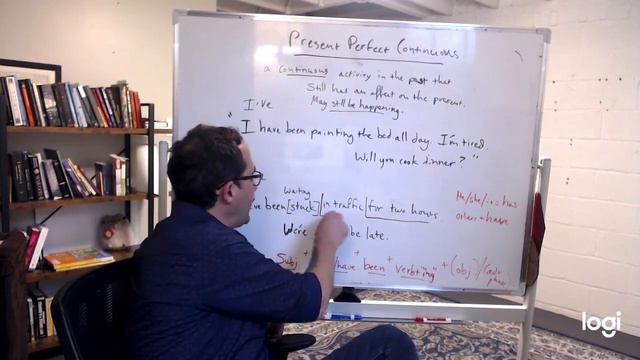 Present Perfect Continuous
a continuous activity in the past that
Still has an affect on the present.
May still be happening.
I've
"I have been painting the bed all day. I'm tired.
Will you cook dinner?"
waiting
've been [stuck] in traffic for two hours
We're be late.
He/she/it = has
others = have
Subj + have + been + verb "ing" + (obj)/
logi